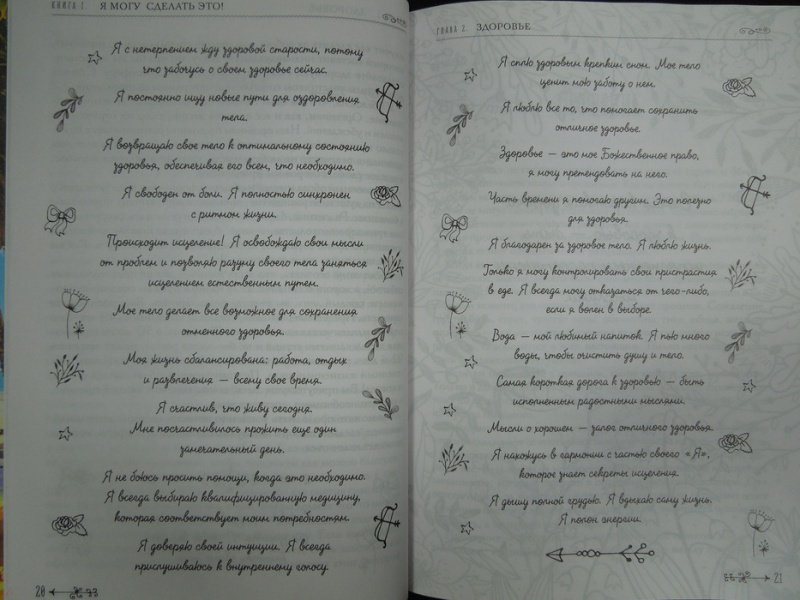 КНИГА 1 Я МОГУ СДЕЛАТЬ ЭТО!
Я с нетерпением жду здоровой старости, потому
что забочусь о своем здоровье сейчас.
Я постоянно ищу новые пути для оздоровления
тела.
Я возвращаю свое тело к оптимальному состоянию
здоровья, обеспечивая его всем, что необходимо.
Я свободен от боли. Я полностью синхронен
с ритмом жизни.
Происходит исцеление! Я освобождаю свои мысли
от проблем и позволяю разуму своего тела заняться
исцелением естественным путем.
Мое тело делает все возможное для сохранения
отменного здоровья.
Моя жизнь сбалансирована: работа, отдых
и развлечения — всему свое время.
Я счастлив, что живу сегодня.
Мне посчастливилось прожить еще один
замечательный день.
Я не боюсь просить помощи, когда это необходимо.
Я всегда выбираю квалифицированную медицину,
которая соответствует моим потребностям.
Я доверяю своей интуиции. Я всегда
прислушиваюсь к внутреннему голосу.
20
ГЛАВА 2. ЗДОРОВЬЕ
Я сплю здоровым крепким сном. Мое тело
ценит мою заботу о нем.
Я люблю все то, что помогает сохранить
отличное здоровье.
Здоровье — это мое Божественное право,
я могу претендовать на него.
Часть времени я помогаю другим. Это полезно
для здоровья.
Я благодарен за здоровое тело. Я люблю жизнь.
Только я могу контролировать свои пристрастия
в еде. Я всегда могу отказаться от чего-либо,
если я волен в выборе.
Вода — мой любимый напиток. Я пью много
воды, чтобы очистить душу и тело.
Самая короткая дорога к здоровью — быть
исполненным радостными мыслями.
Мысли о хорошем — залог отличного здоровья.
Я нахожусь в гармонии с частью своего «Я»,
которое знает секреты исцеления.
Я дышу полной грудью. Я вдыхаю саму жизнь.
Я полон энергии.
21